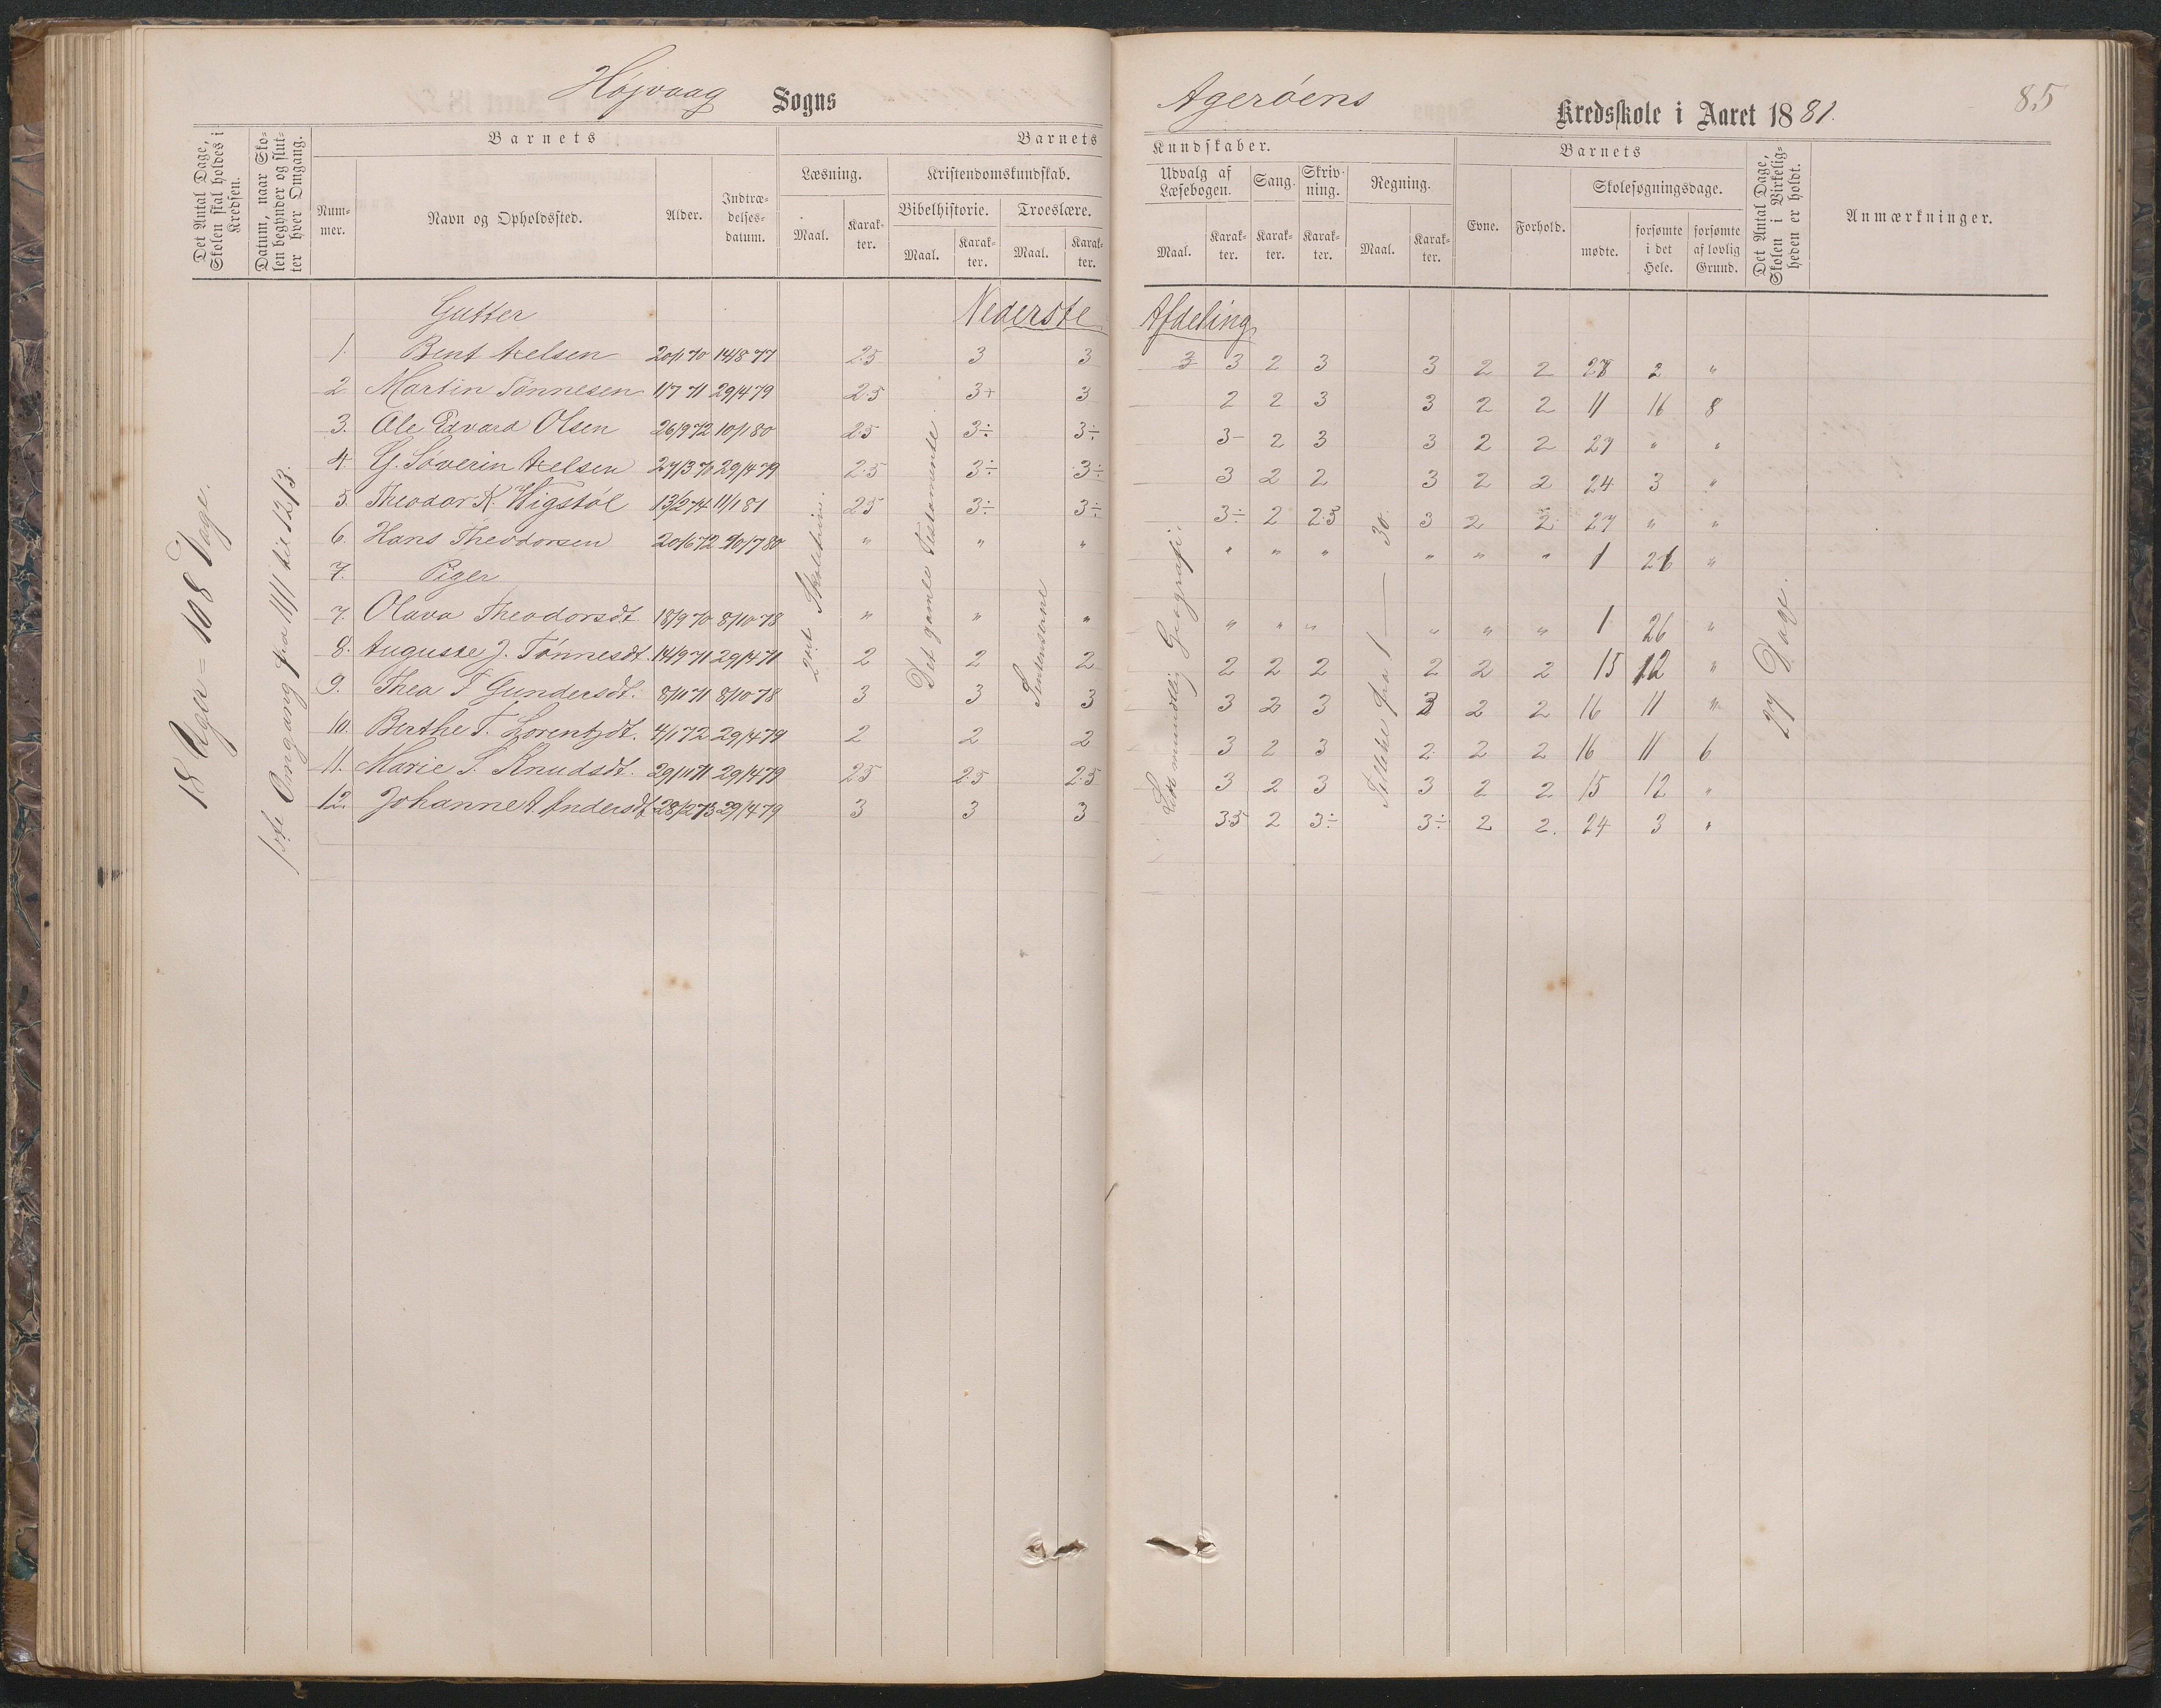 Højvaag Sogns
Agerøens Kredsskole i Aaret 1881.
85
Det Antal Dage, Skolen skal holdes i Kredsen.
Datum, naar Skolen begynder og slutter hver Omgang.
Barnets
Nummer.
Navn og Opholdssted.
Alder.
Indtrædelsesdatum.
Barnets
Læsning.
Maal.
Karakter.
Kristendomskundskab.
Bibelhistorie.
Maal.
Karakter.
Troeslære.
Maal.
Karakter.
Kundskaber.
Udvalg af Læsebogen.
Maal.
Karakter.
Sang.
Karakter.
Skrivning.
Karakter.
Regning.
Maal.
Karakter.
Barnets
Evne.
Forhold.
Skolesøgningsdage.
mødte.
forsømte i det Hele.
forsømte af lovlig Grund.
Det Antal Dage, Skolen i Virkeligheden er holdt.
Anmærkninger.
18 Uger = 108 Dage.
1ste Omgang fra 11/1 til 12/3.
Gutter
Nederste Afdeling
1. Bent Axelsen 20/1 70 14/8 77 2.5 3 3 3 3 2 3 3 2 2 28 2 "
2 Martin Tønnesen 11/7 71 29/4 79 2.5 3+ 3 2 2 3 3 2 2 11 16 8
3. Ole Edvard Olsen 26/9 72 10/1 80 2.5 3÷ 3÷ 3- 2 3 3 2 2 27 " "
4 G. Søverin Axelsen 27/3 70 29/4 79 2.5 3÷ 3÷ 3 2 2 3 2 2 24 3 "
5. Theodor K. Vigstøl 13/2 74 11/1 81 2.5 3÷ 3÷ 3÷ 2 2.3 3 2 2 27 " "
6. Hans Theodorsen 20/6 72 20/7 80 " " " " " " " " " 1 26 "
7. Piger
7. Olava Theodorsdt. 18/9 70 8/10 78 " " " " " " " " " 1 26 "
8. Auguste J. Tønnesdt. 14/9 71 29/4 71 2 2 2 2 2 2 2 2 2 15 12 "
9. Thea T. Gundersdt. 8/11 71 8/10 78 3 3 3 3 2 3 3 2 2 16 11 "
10. Berthe T. Lorentzdt. 4/1 72 29/4 79 2 2 2 3 2 3 2 2 2 16 11 6
11. Marie S. Knudsdt. 29/11 71 29/4 79 2.5 2.5 2.5 3 2 3 3 2 2 15 12 "
12. Johanne A. Andersdt 28/2 73 29/4 79 3 3 3 3.5 2 3÷ 3÷ 2 2. 24 3 "
2det Skoletrin.
Det gamle Testamente.
Lidt mundtlig Geografi.
Tække fra 1 — 30.
27 Dage.